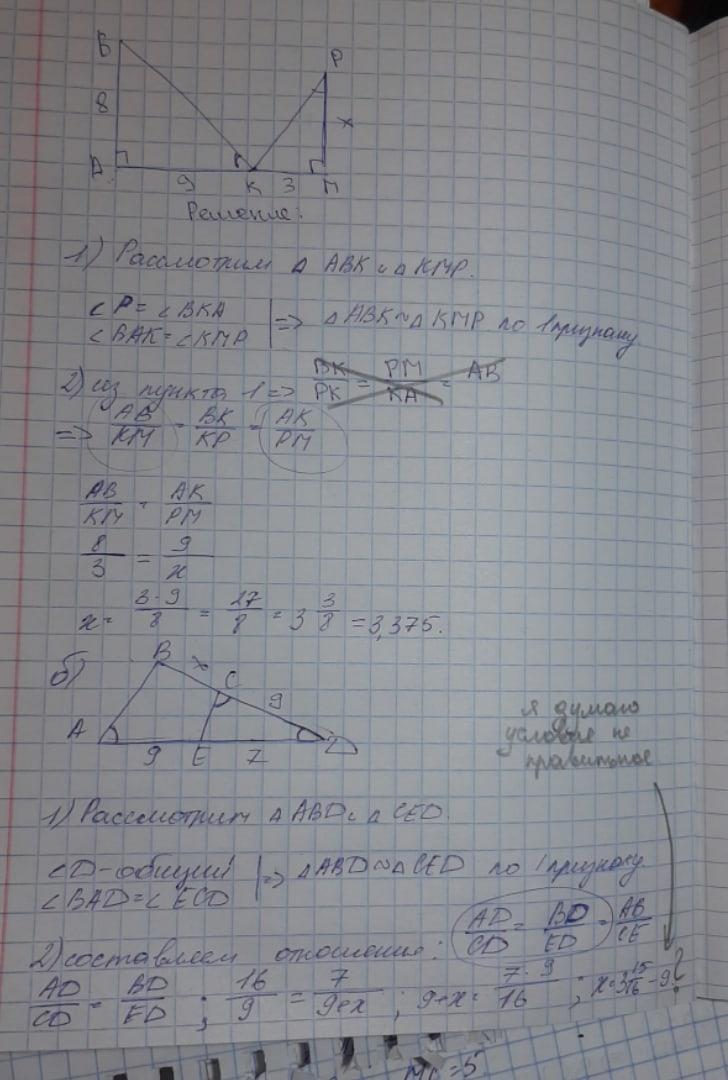 В
Р
8
х
А
9
К
3
М
Решение:
1) Рассмотрим △ ABK и △ KMP.
∠P = ∠BKA
∠BAK = ∠KMP
=> △ABK ~ △KMP по 1 признаку
2) из пункта 1 => BK/PK = PM/KA = AB
=> AB/KM = BK/KP = AK/PM
AB/KM = AK/PM
8/3 = 9/x
x = 3·9/8 = 27/8 = 3 3/8 = 3,375.
б)
B
x
C
9
A
9
E
7
D
я думаю
условие не
правильное
1) Рассмотрим △ ABD и △ CED.
∠D - общий
∠BAD = ∠ECD
=> △ABD ~ △CED по 1 признаку
2) составляем отношение: AD/CD = BD/ED = AB/CE
AD/CD = BD/ED ; 16/9 = 7/9+x ; 9+x = 7·9/16 ; x = 3 15/16 - 9 ?
=5